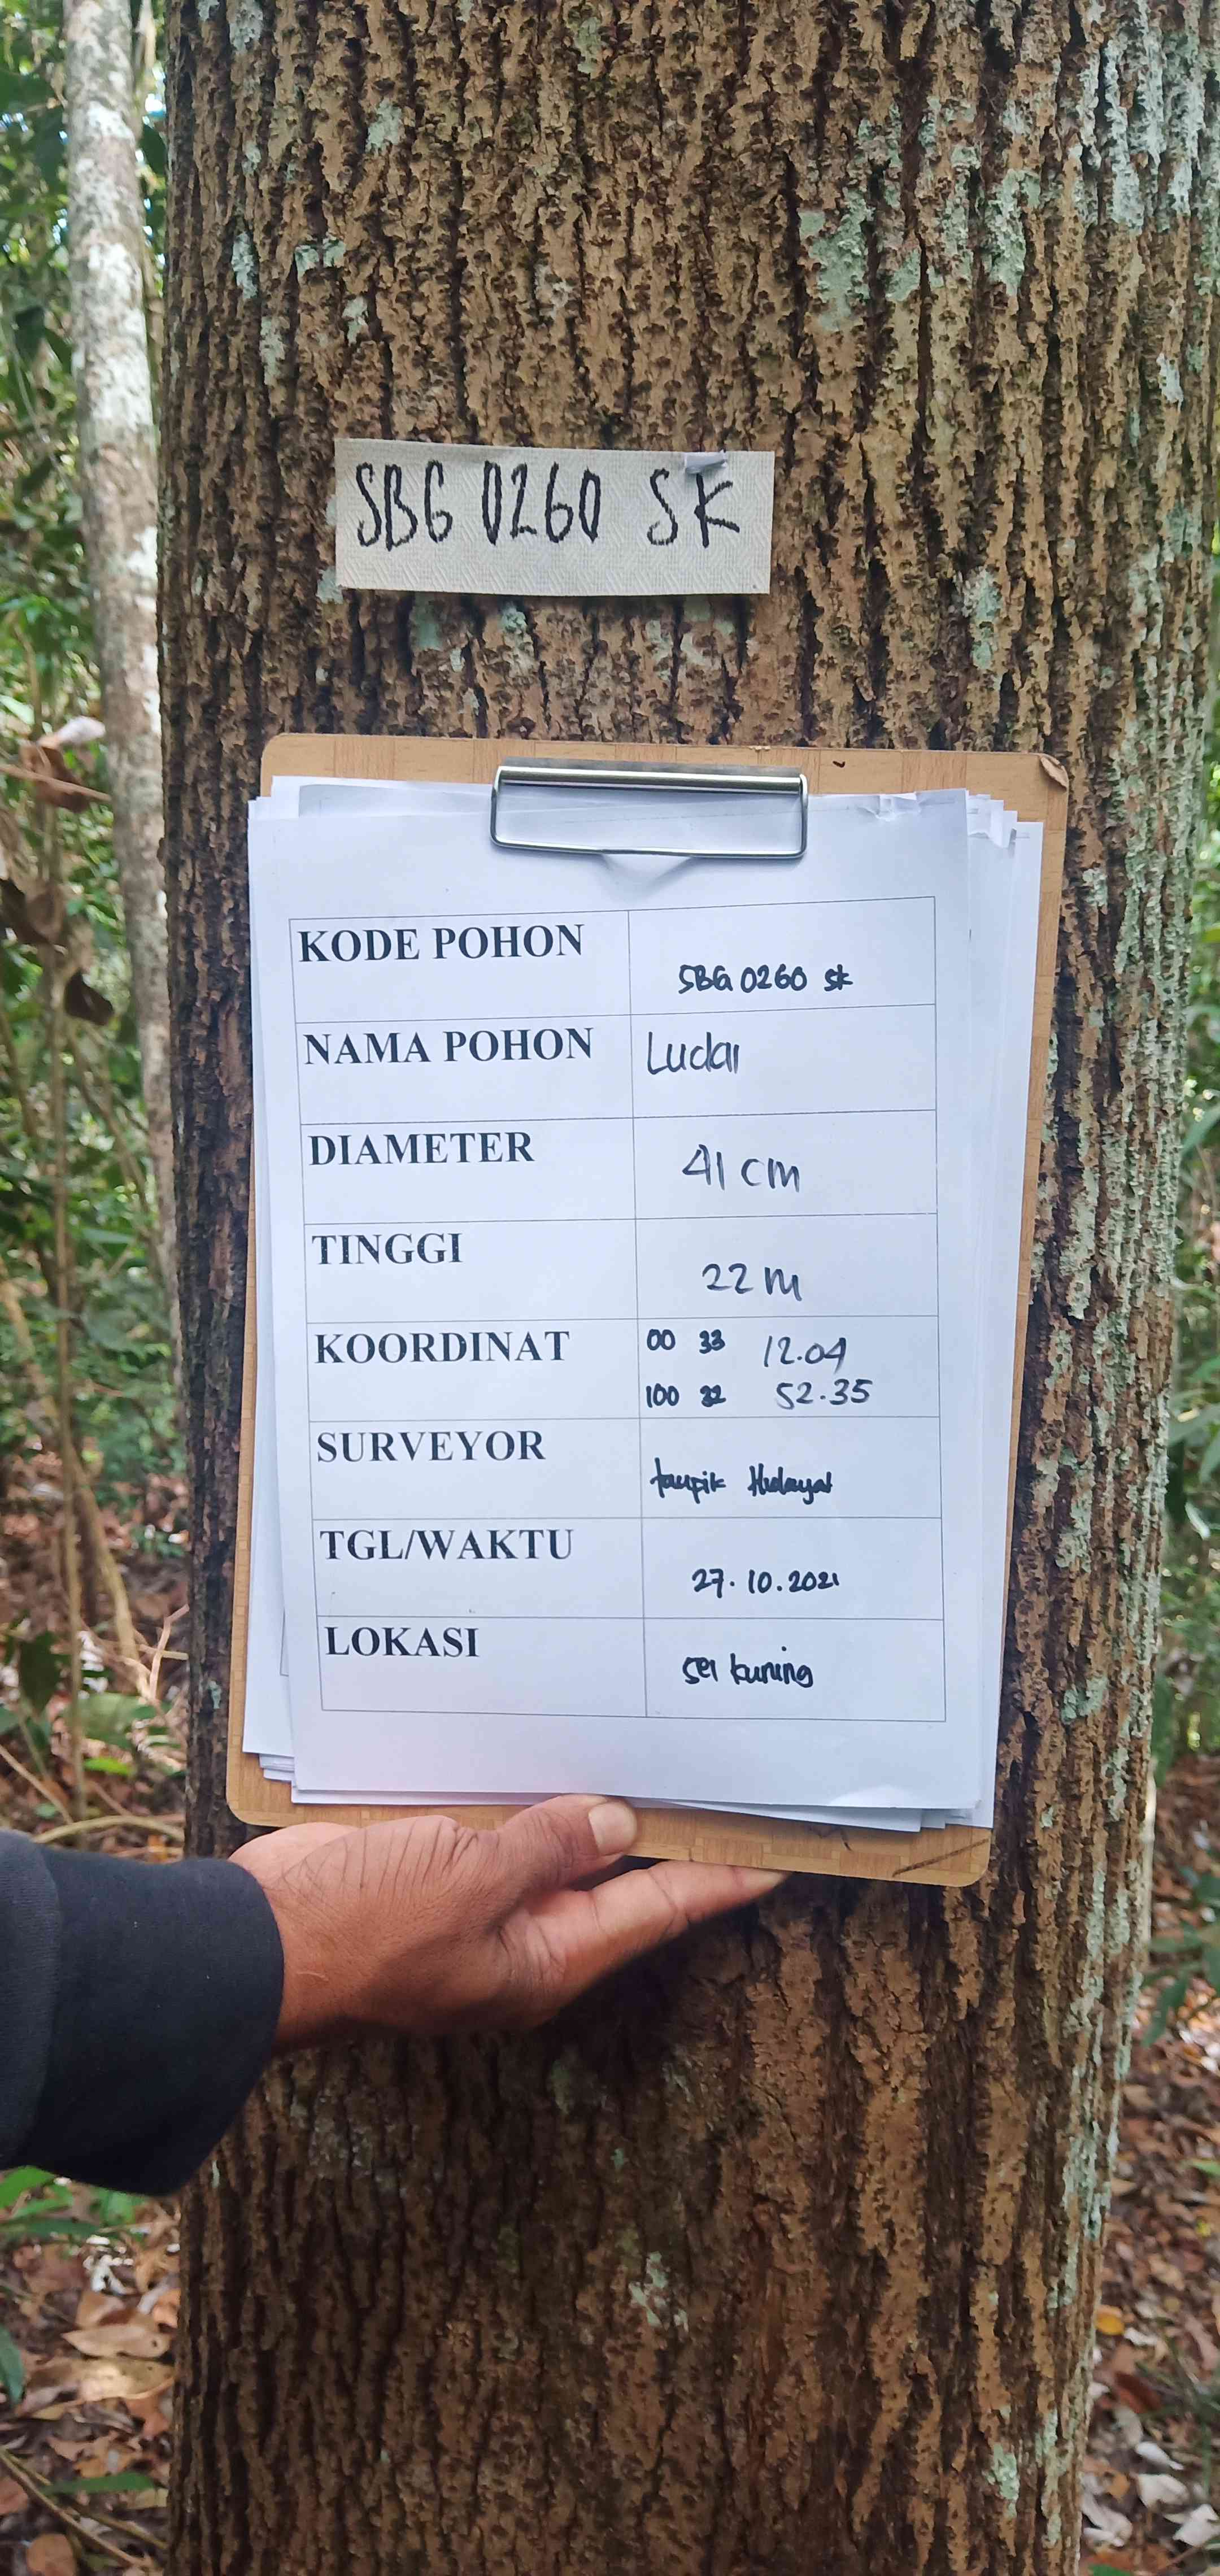 SBG 0260 SK
KODE POHON
SBG 0260 SK
NAMA POHON
Ludai
DIAMETER
41 cm
TINGGI
22 m
KOORDINAT
00 33 12.04
100 32 52.35
SURVEYOR
taupik Hidayat
TGL/WAKTU
27.10.2021
LOKASI
sei kuning